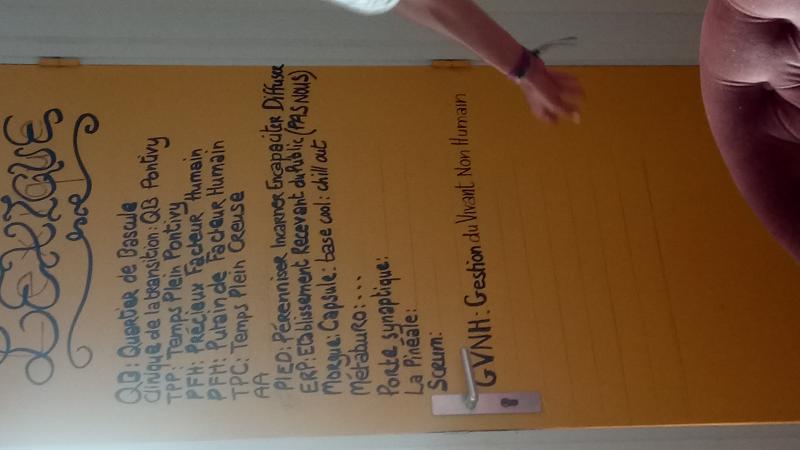 LEXIQUE
QB: Quartier de Bascule
Clinique de la transition: QB Pontivy
TPP: Temps Plein Pontivy
PFH: Précieux Facteur Humain
PFH: Putain de Facteur Humain
TPC: Temps Plein Creuse
AA
PIED: Pérenniser Incarner Encapaciter Diffuser
ERP: Etablissement Recevant du Public (PAS NOUS)
Morgue: Capsule: base cool: chill out
Métaburo: ...
Porte synaptique:
La Pinéale:
Scrum:
GVNH: Gestion du Vivant Non Humain